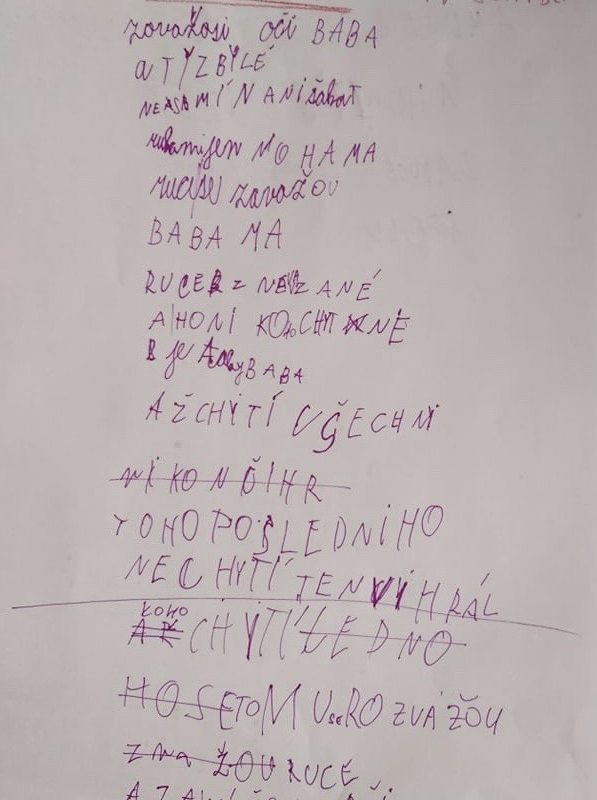 zavažosi oči BABA
a TY ZBYLÉ
NESMÍ NANIšahat
rukamijen NOHAMA
ruceje zavažOU
BABA MA
RUCE Z NEVZANÉ
A HONÍ KOHOCHYTNE
je tobyBABA
AŽ CHYTÍ VŠECHNI
NIKONČIHR
TOHO POSLEDNIHO
NECHYTÍ TEN VYHRÁL
KOHO
AK CHYTÍ LEDNO
HO SE TOMUseROZVÁŽOU
ZNA ŽOU RUCE